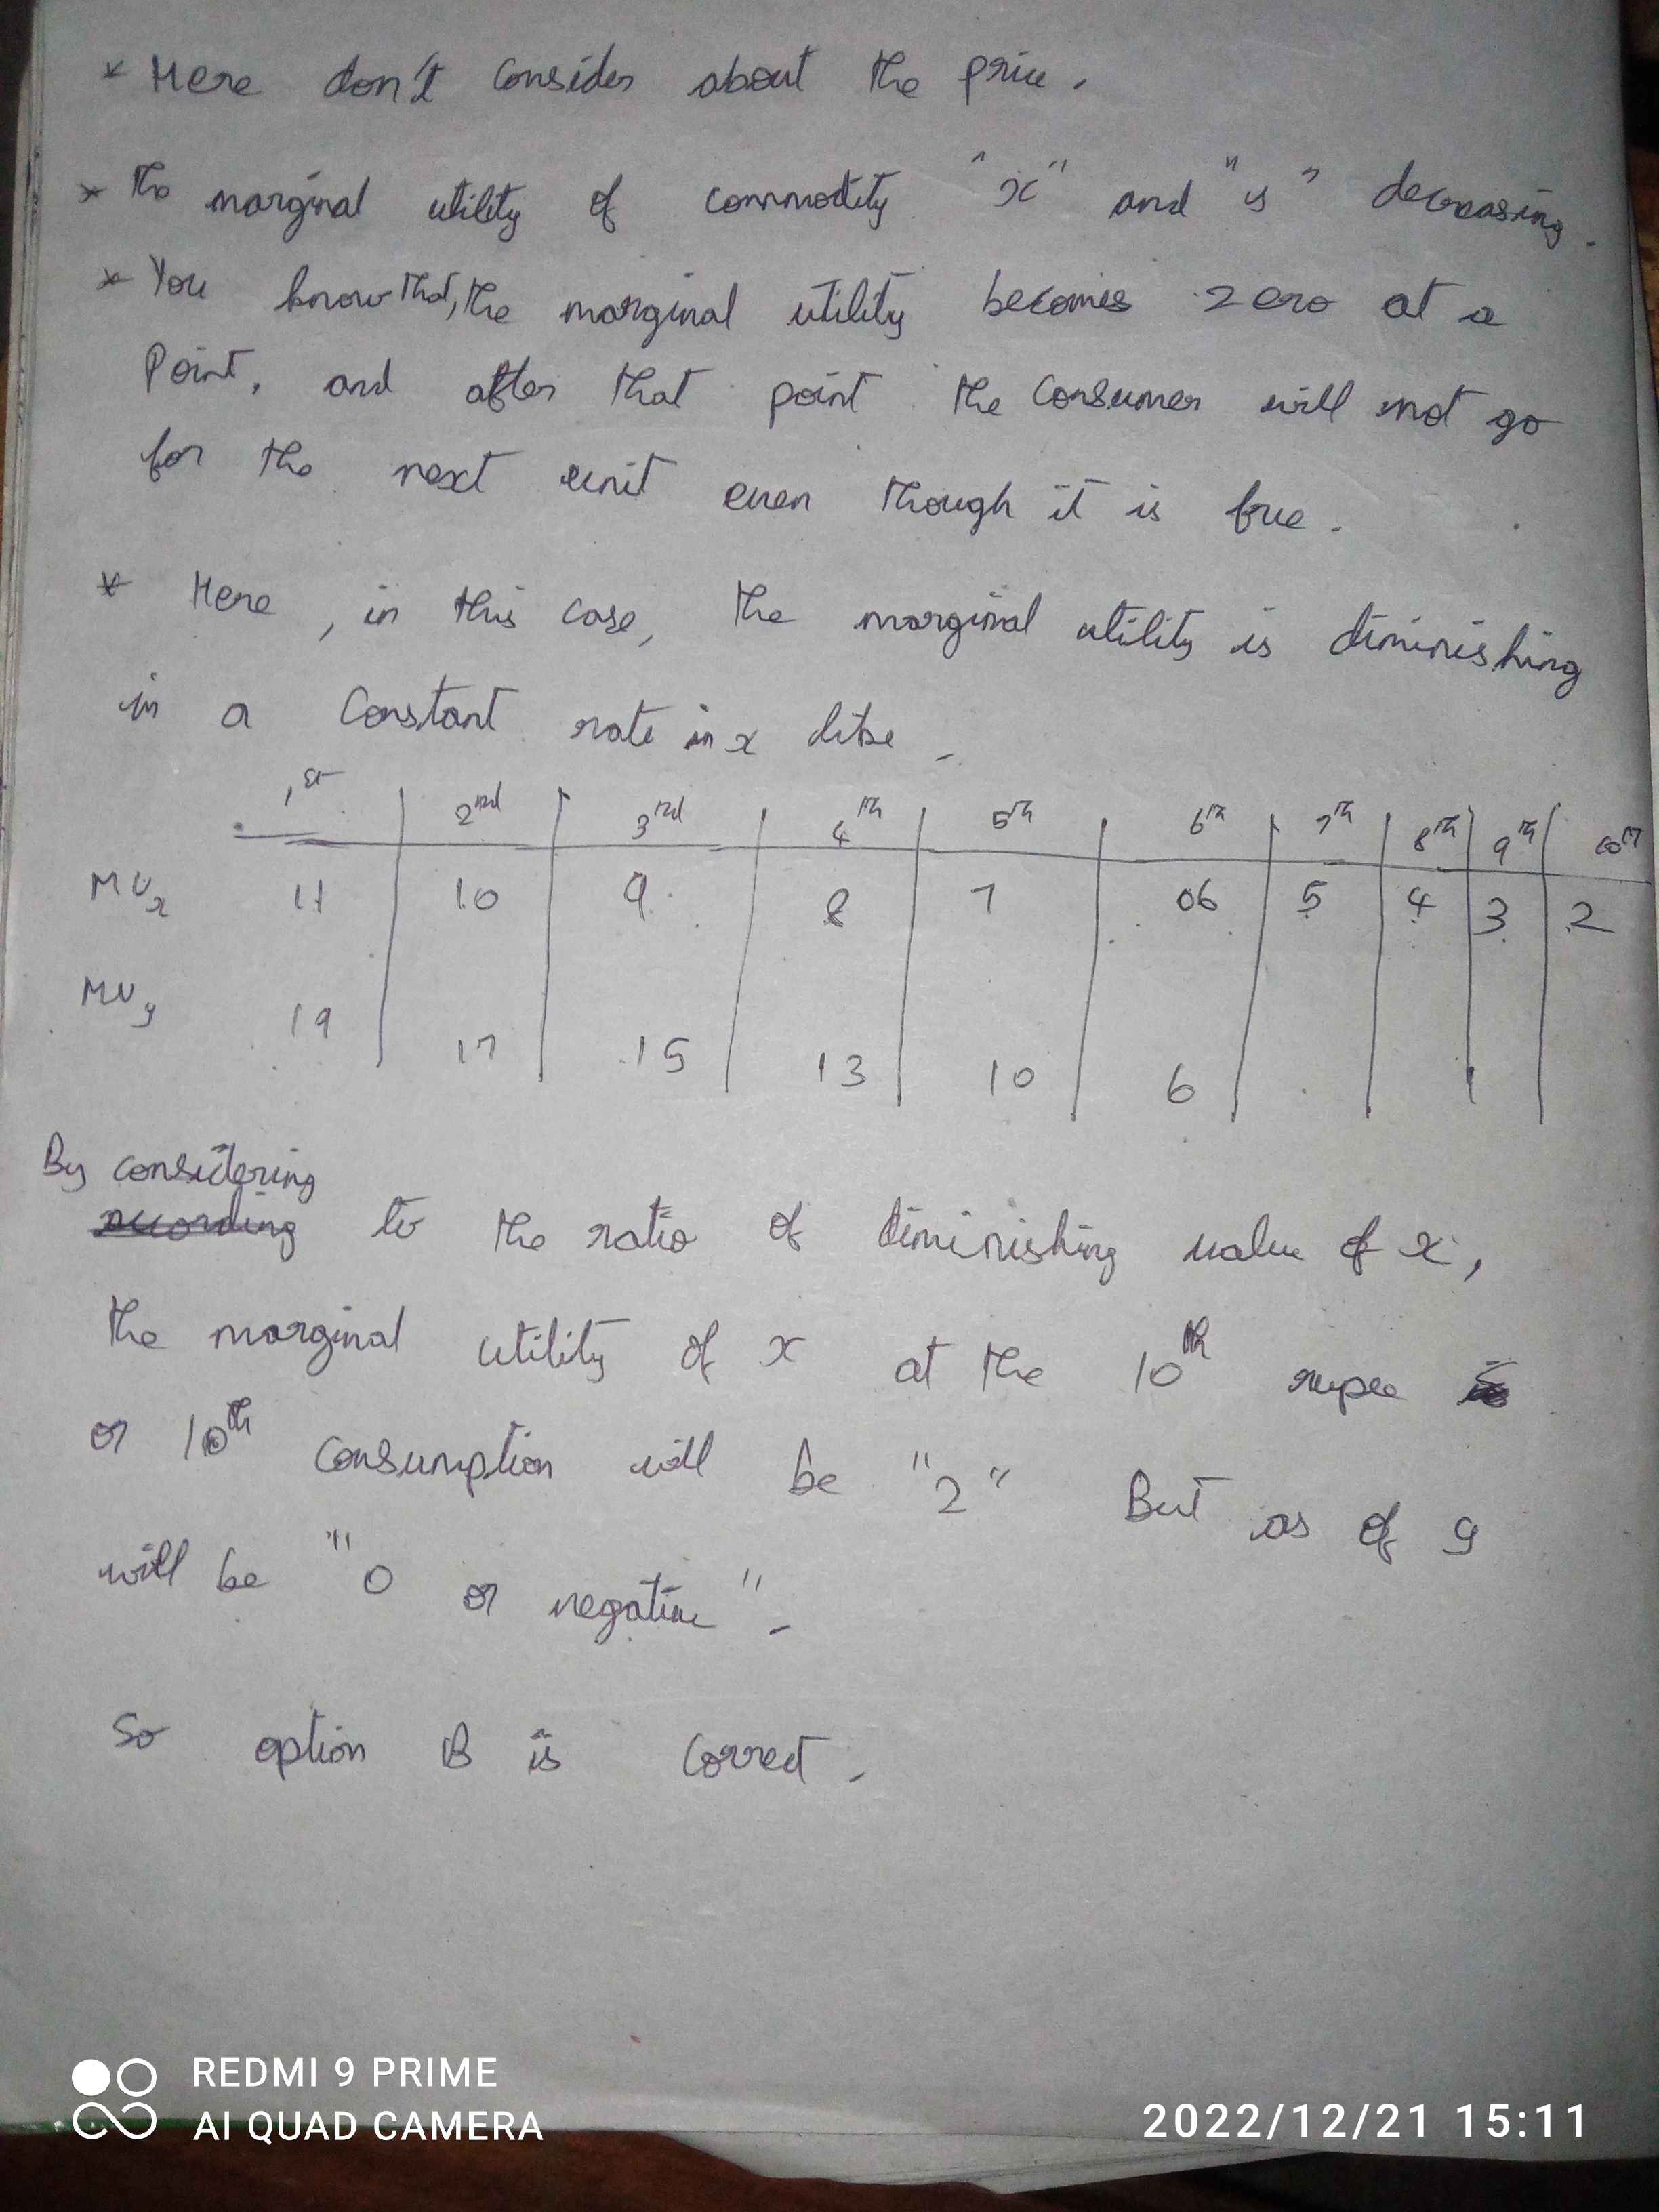 * Here don't consider about the price.
* The marginal utility of commodity "x" and "y" decreasing.
* You know that, the marginal utility becomes zero at a
Point, and after that point the consumer will not go
for the next unit even though it is free.
* Here, in this case, the marginal utility is diminishing
in a constant rate in x like
1st 2nd 3rd 4th 5th 6th 7th 8th 9th 10th
MUx 11 10 9 8 7 06 5 4 3 2
MUy 19 17 15 13 10 6
By considering
according to the ratio of diminishing value of x,
the marginal utility of x at the 10th rupee is
or 10th consumption will be "2" But as of y
will be "0 or negative".
So option B is correct.
REDMI 9 PRIME
AI QUAD CAMERA
2022/12/21 15:11